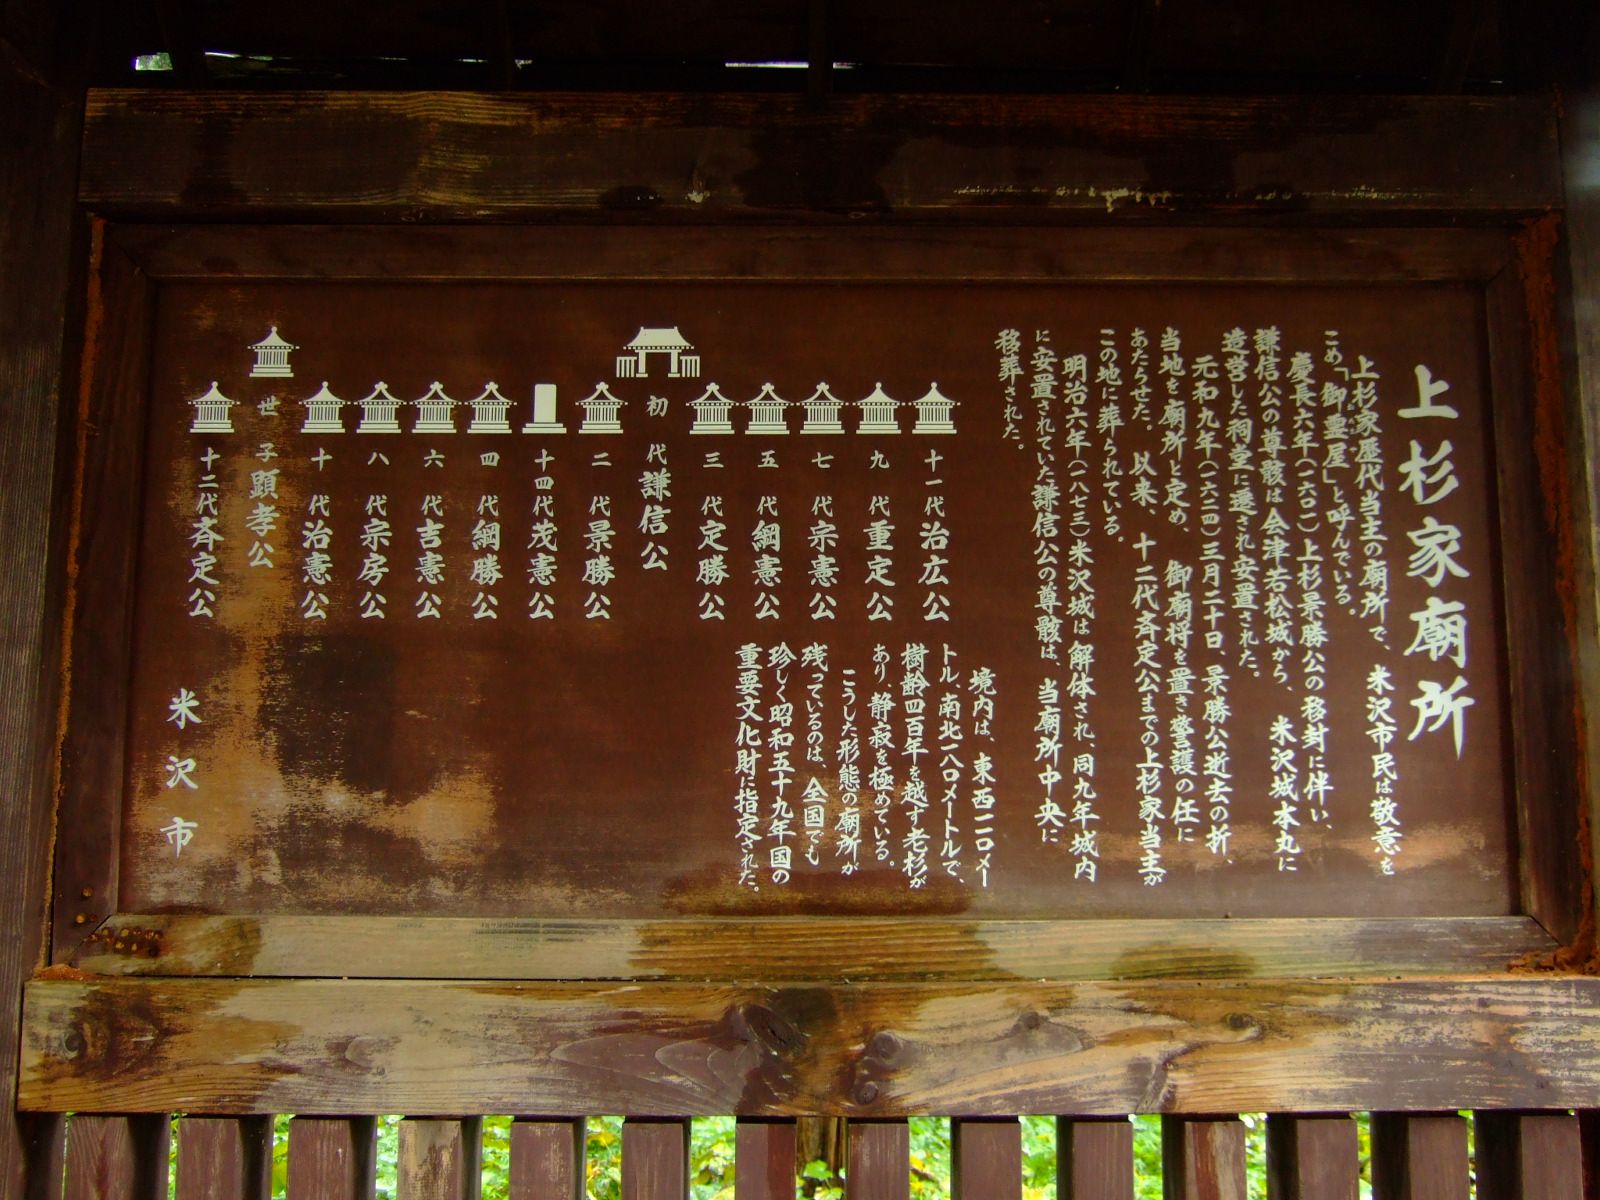 上杉家廟所
上杉家歴代当主の廟所で、米沢市民は敬意を
こめ「御霊屋」と呼んでいる。
慶長六年(一六〇一)上杉景勝公の移封に伴い、
謙信公の尊骸は会津若松城から、米沢城本丸に
造営した祠堂に遷され安置された。
元和九年(一六二四)三月二十日、景勝公逝去の折、
当地を廟所と定め、御廟将を置き警護の任に
あたらせた。以来、十二代斉定公までの上杉家当主が
この地に葬られている。
明治六年(一八七三)米沢城は解体され、同九年城内
に安置されていた謙信公の尊骸は、当廟所中央に
移葬された。
境内は、東西一一〇メー
トル、南北一八〇メートルで、
樹齢四百年を越す老杉が
あり、静寂を極めている。
こうした形態の廟所が
残っているのは、全国でも
珍しく昭和五十九年国の
重要文化財に指定された。
十一代治広公
九代重定公
七代宗憲公
五代綱憲公
三代定勝公
初代謙信公
二代景勝公
十四代茂憲公
四代綱勝公
六代吉憲公
八代宗房公
十代治憲公
世子顕孝公
十二代斉定公
米沢市